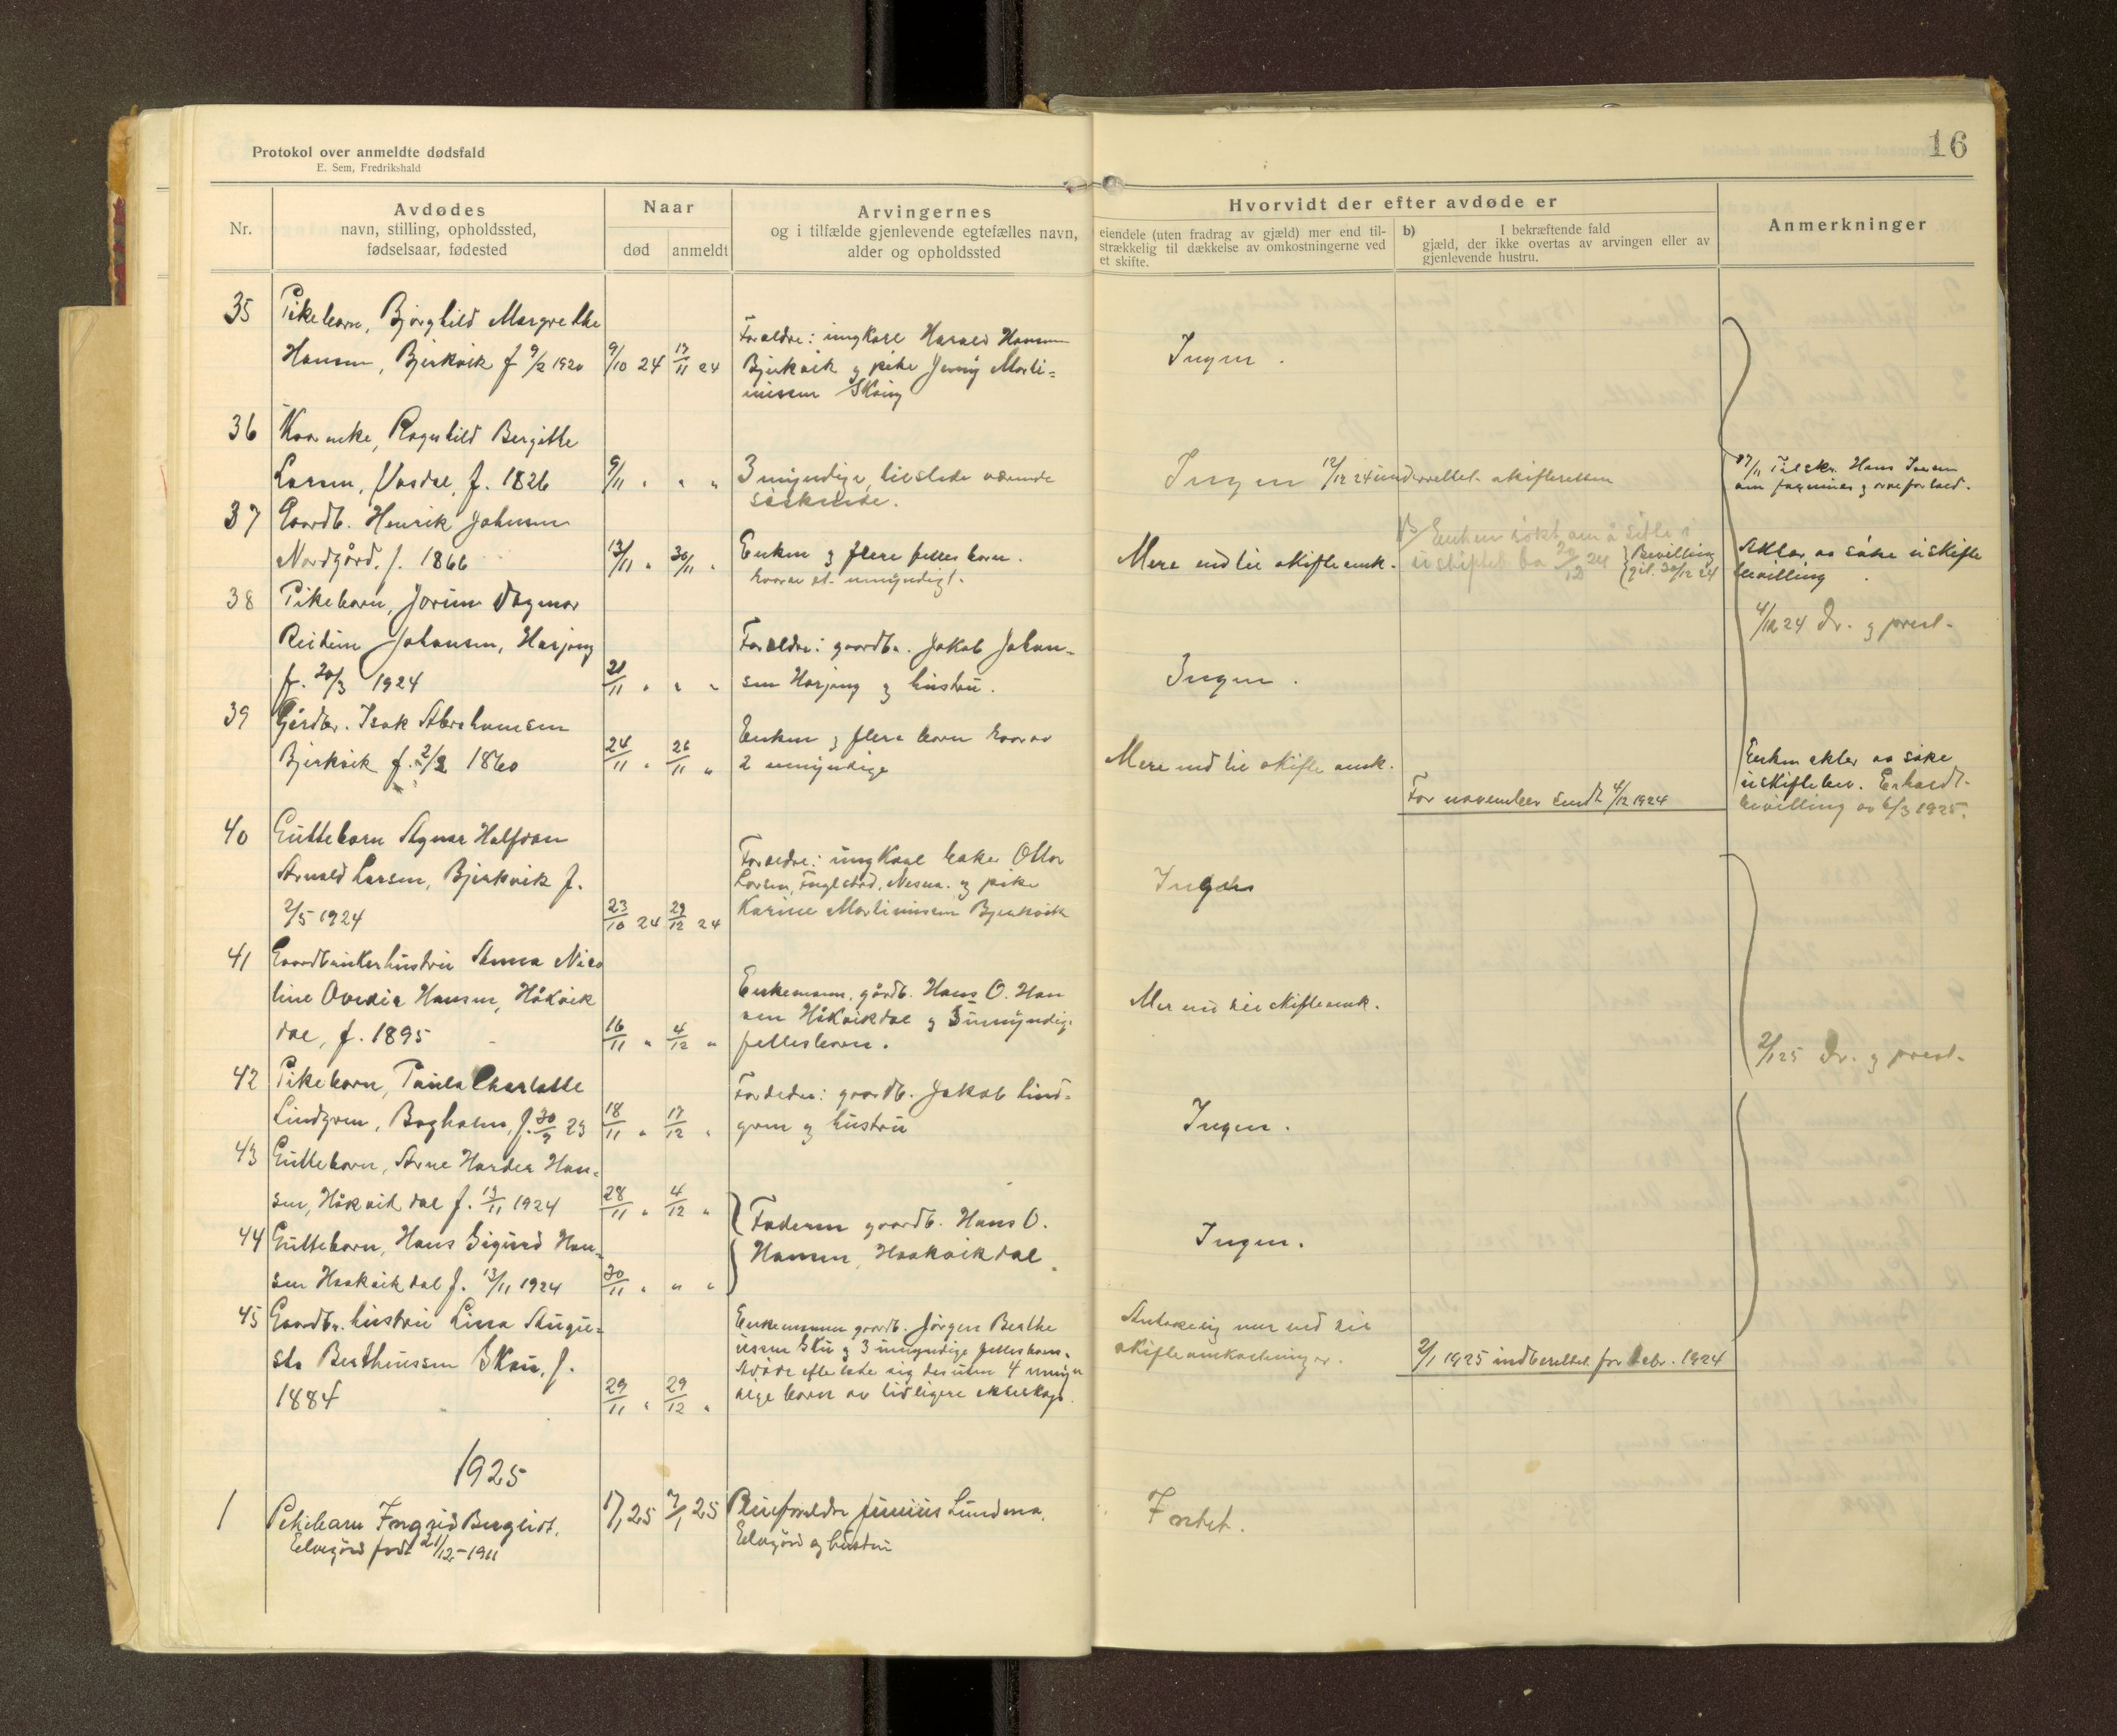 Protokol over anmeldte dødsfald
E. Sem, Fredrikshald
16
Nr.
Avdødes
navn, stilling, opholdssted,
fødselsaar, fødested
Naar
død
anmeldt
Arvingernes
og i tilfælde gjenlevende egtefælles navn,
alder og opholdssted
Hvorvidt der efter avdøde er
eiendele (uten fradrag av gjæld) mer end til-
strækkelig til dækkelse av omkostningerne ved
et skifte.
b) I bekræftende fald
gjæld, der ikke overtas av arvingen eller av
gjenlevende hustru.
Anmerkninger
35 Pikebarn, Bjørghild Margrethe
Hansen, Bjerkvik f 9/2 1920
9/10 24
17/11 24
Forældre: ungkarl Harald Hansen
Bjerkvik og pike Jenny Marti-
nussen
Ingen.
36 Ragnhild Bergitte
Larsen, Vasdal, f. 1826
9/11 " " "
3 myndige, tilstede værende
søskende.
Ingen 12/12 24 underrettet skifteretten
17/11 Tilskr. Hans
37 Gaardb. Henrik Johnsen
Nordgård, f. 1866
13/11 "
30/11 "
Enken og flere felles barn.
hvorav et umyndigt.
Mere end til skifteomk.
Enken søkt om å sitte i
uskiftet bo 20/12 24
Bevilling
git. 30/12 24
Akter at søke uskifte
bevilling
38 Pikebarn, Jorunn Dagmar
Johansen, Harjang
f. 20/3 1924
21/11 " " "
Forældre: gaardbr. Jakob Johan-
sen Harjang og hustru.
Ingen.
4/12 24 Dr. og prest.
39 Gårdbr. Isak Abrahamsen
Bjerkvik f. 2/2 1860
24/11 "
26/11 "
Enken og flere barn hvorav
2 umyndige
Mere end til skifte omk.
For november sendt 4/12 1924
Enken akter at søke
uskiftebev. Erholdt
bevilling av 6/3 1925.
40 Guttebarn Agnar Halfdan
Arnold Larsen, Bjerkvik f.
2/5 1924
23/10 24
29/12 24
Forældre: ungkarl baker Ottar
Larsen, Nesna. og pike
Karine Martinussen Bjerkvik
Ingen
41 Gaardbrukerhustru Anna Nico
line Ovedia Hansen, Håkvik
dal, f. 1895
16/11 "
4/12 "
Enkemann, gårdb. Hans O. Han
sen Håkvikdal og 3 umyndige
fellesbarn.
Mer end til skifteomk.
2/1 25 Dr. og prest.
42 Pikebarn, Paula Charlotte
Lindgren, Bogholm, f. 30/9 23
18/11 "
17/12 "
Forældre: gaardb. Jakob Lind-
gren og hustru
Ingen.
43 Guttebarn, Arne Harder Han-
sen, Håkvikdal f. 13/11 1924
28/11 "
4/12 "
Faderen gaardb. Hans O.
Hansen, Haakvikdal.
44 Guttebarn, Hans Sigurd Han-
sen Haakvikdal f. 13/11 1924
30/11 " " "
Ingen.
45 Gaardbr. hustru Lina Augu-
sta Berthiussen Skau, f.
1884
29/11 "
29/12 "
Enkemannen gaardb. Jørgen Berthe
iussen og 3 umyndige fellesbarn.
Avdøde efterlater sig desuten 4 umyn
dige barn av tidligere ekteskap.
Antagelig mer end til
skifteomkostninger.
2/1 1925 indberettet for debr. 1924
1925
1 Pikebarn Ingrid Bergliot,
Elvegård født 21/12-1911
1/1 25
7/1 25
Pleieforældre Junius Lundmo,
Elvegård og hustru
Intet.